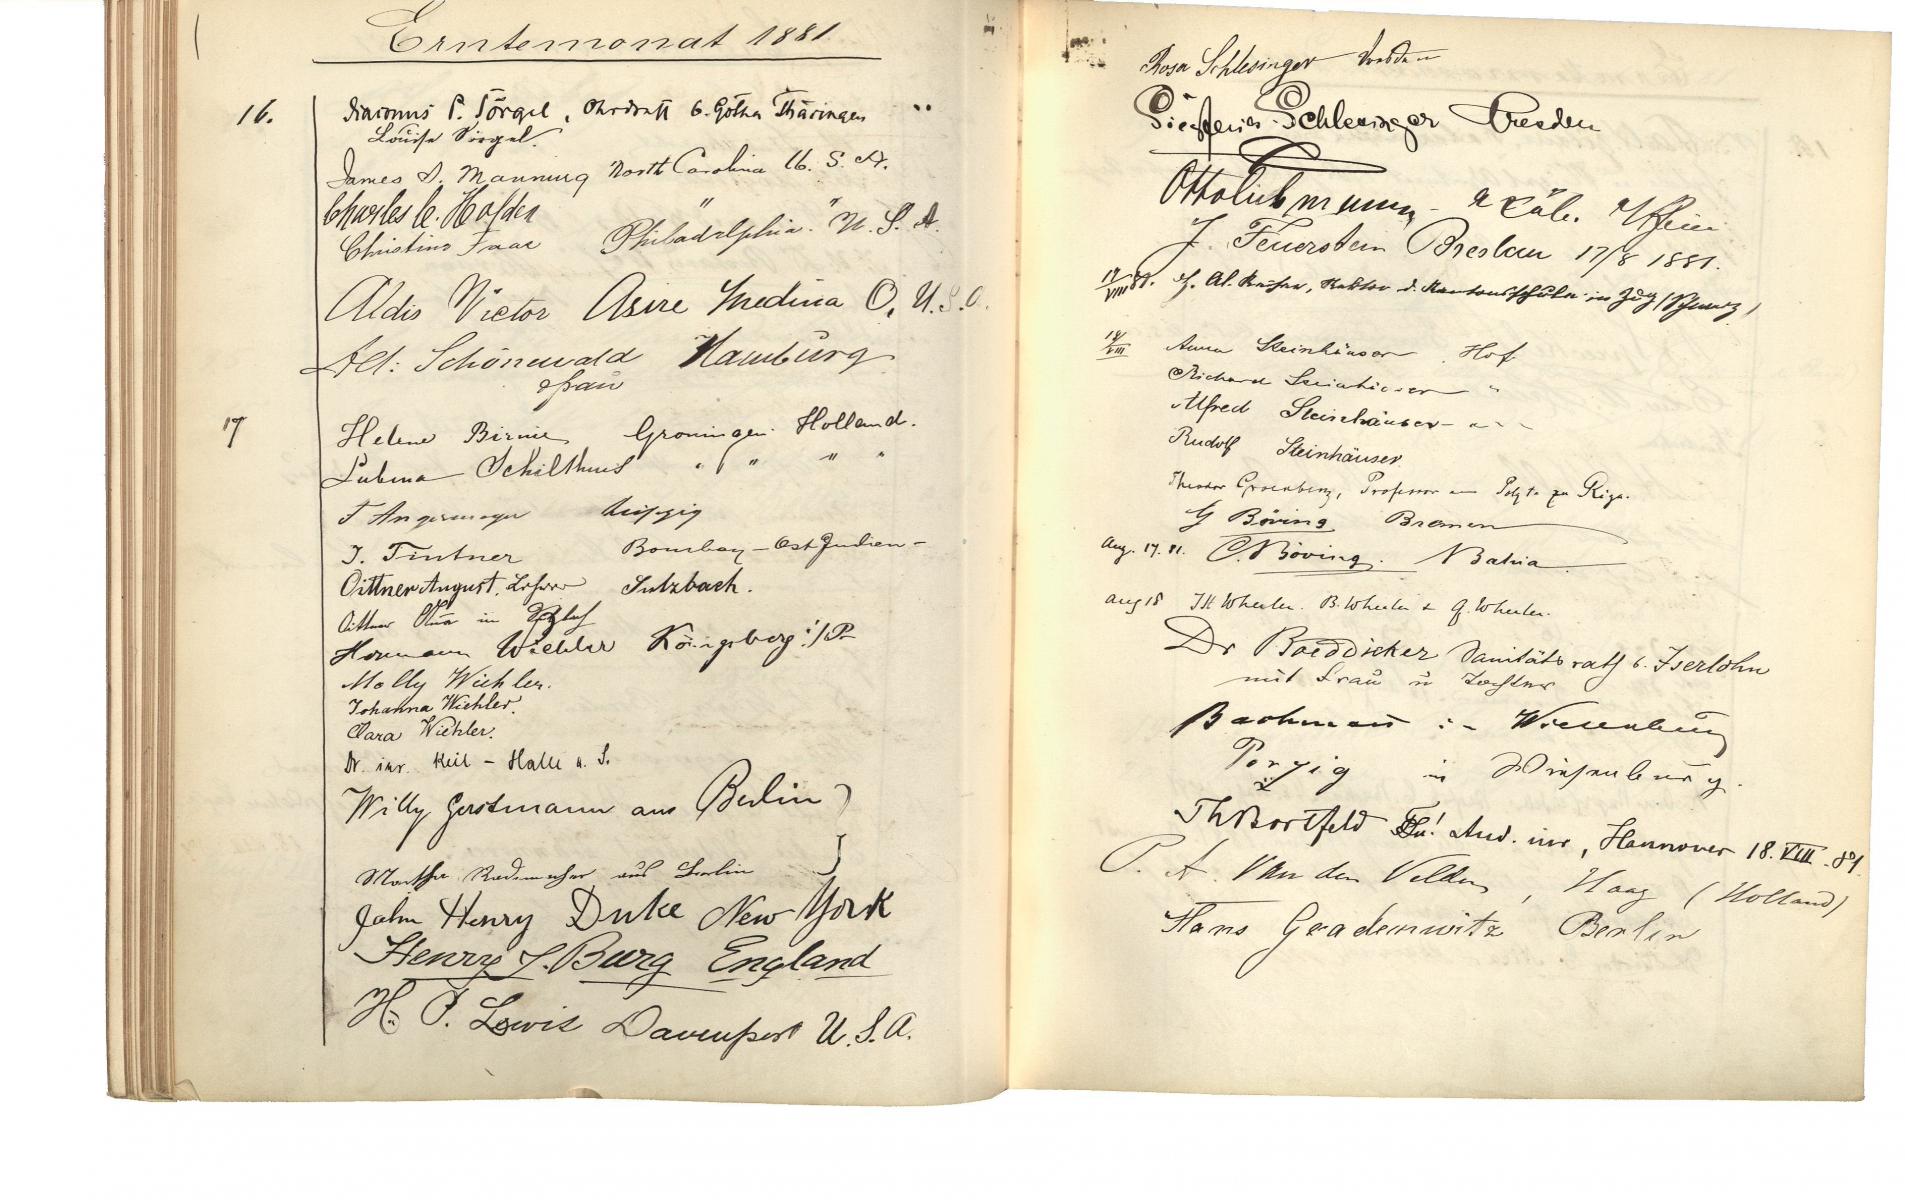 Erntemonat 1881
16.
Diaconus P. Törgel, Ohrdruff b. Gotha Thüringen
Louise Törgel.
James S. Manning North Carolina U. S. A.
Charles C. Holden " "
Christine Faas Philadelphia. U. S. A.
Aldis Victor Asire Medina O. U.S.A.
Alb: Schönewald Hamburg
Frau
17
Helene Birnie Groningen. Holland.
Lubina Schilthuis " " " "
F Angermeyer Leipzig
I. Tintner Bombay – Ost Indien –
Oittner August, Lehrer Sulzbach.
Oittner in
Hermann Wiehler Königsberg i/P
Molly Wiehler.
Johanna Wiehler.
Clara Wiehler.
Dr. iur. Keil – Halle a. S.
Willy Gerstmann aus Berlin
Martha Rademacher aus Berlin
John Henry Duke New York
Henry J. Burg England
H. P. Lewis Davenport U. S. A.
Rosa Schlesinger Dresden
Schlesinger Dresden
Otto Liebmann a/Rhein
J. Feuerstein Breslau 17/8 1881.
17/VIII 81. Al. Keiser, Rektor d. Kantonsschule in Zug (Schweiz)
17/VIII Anna Steinhäuser Hof
Richard Steinhäuser "
Alfred Steinhäuser "
Rudolf Steinhäuser
Theodor Groenberg, Professor am Polyt. zu Riga.
G Böving Bremen
Aug. 17. 81. C. Böving. Bahia
Aug 18 J H Wheeler. B. Wheeler & G. Wheeler.
Dr Boeddicker Sanitätsrath b. Iserlohn
mit Frau u Tochter
Bachmann in Wiesenburg
Porzig in Wiesenburg.
Th Bortfeld iur, Hannover 18. VIII. 81
P. A. Van den Velden, Haag (Holland)
Hans Gradenwitz Berlin